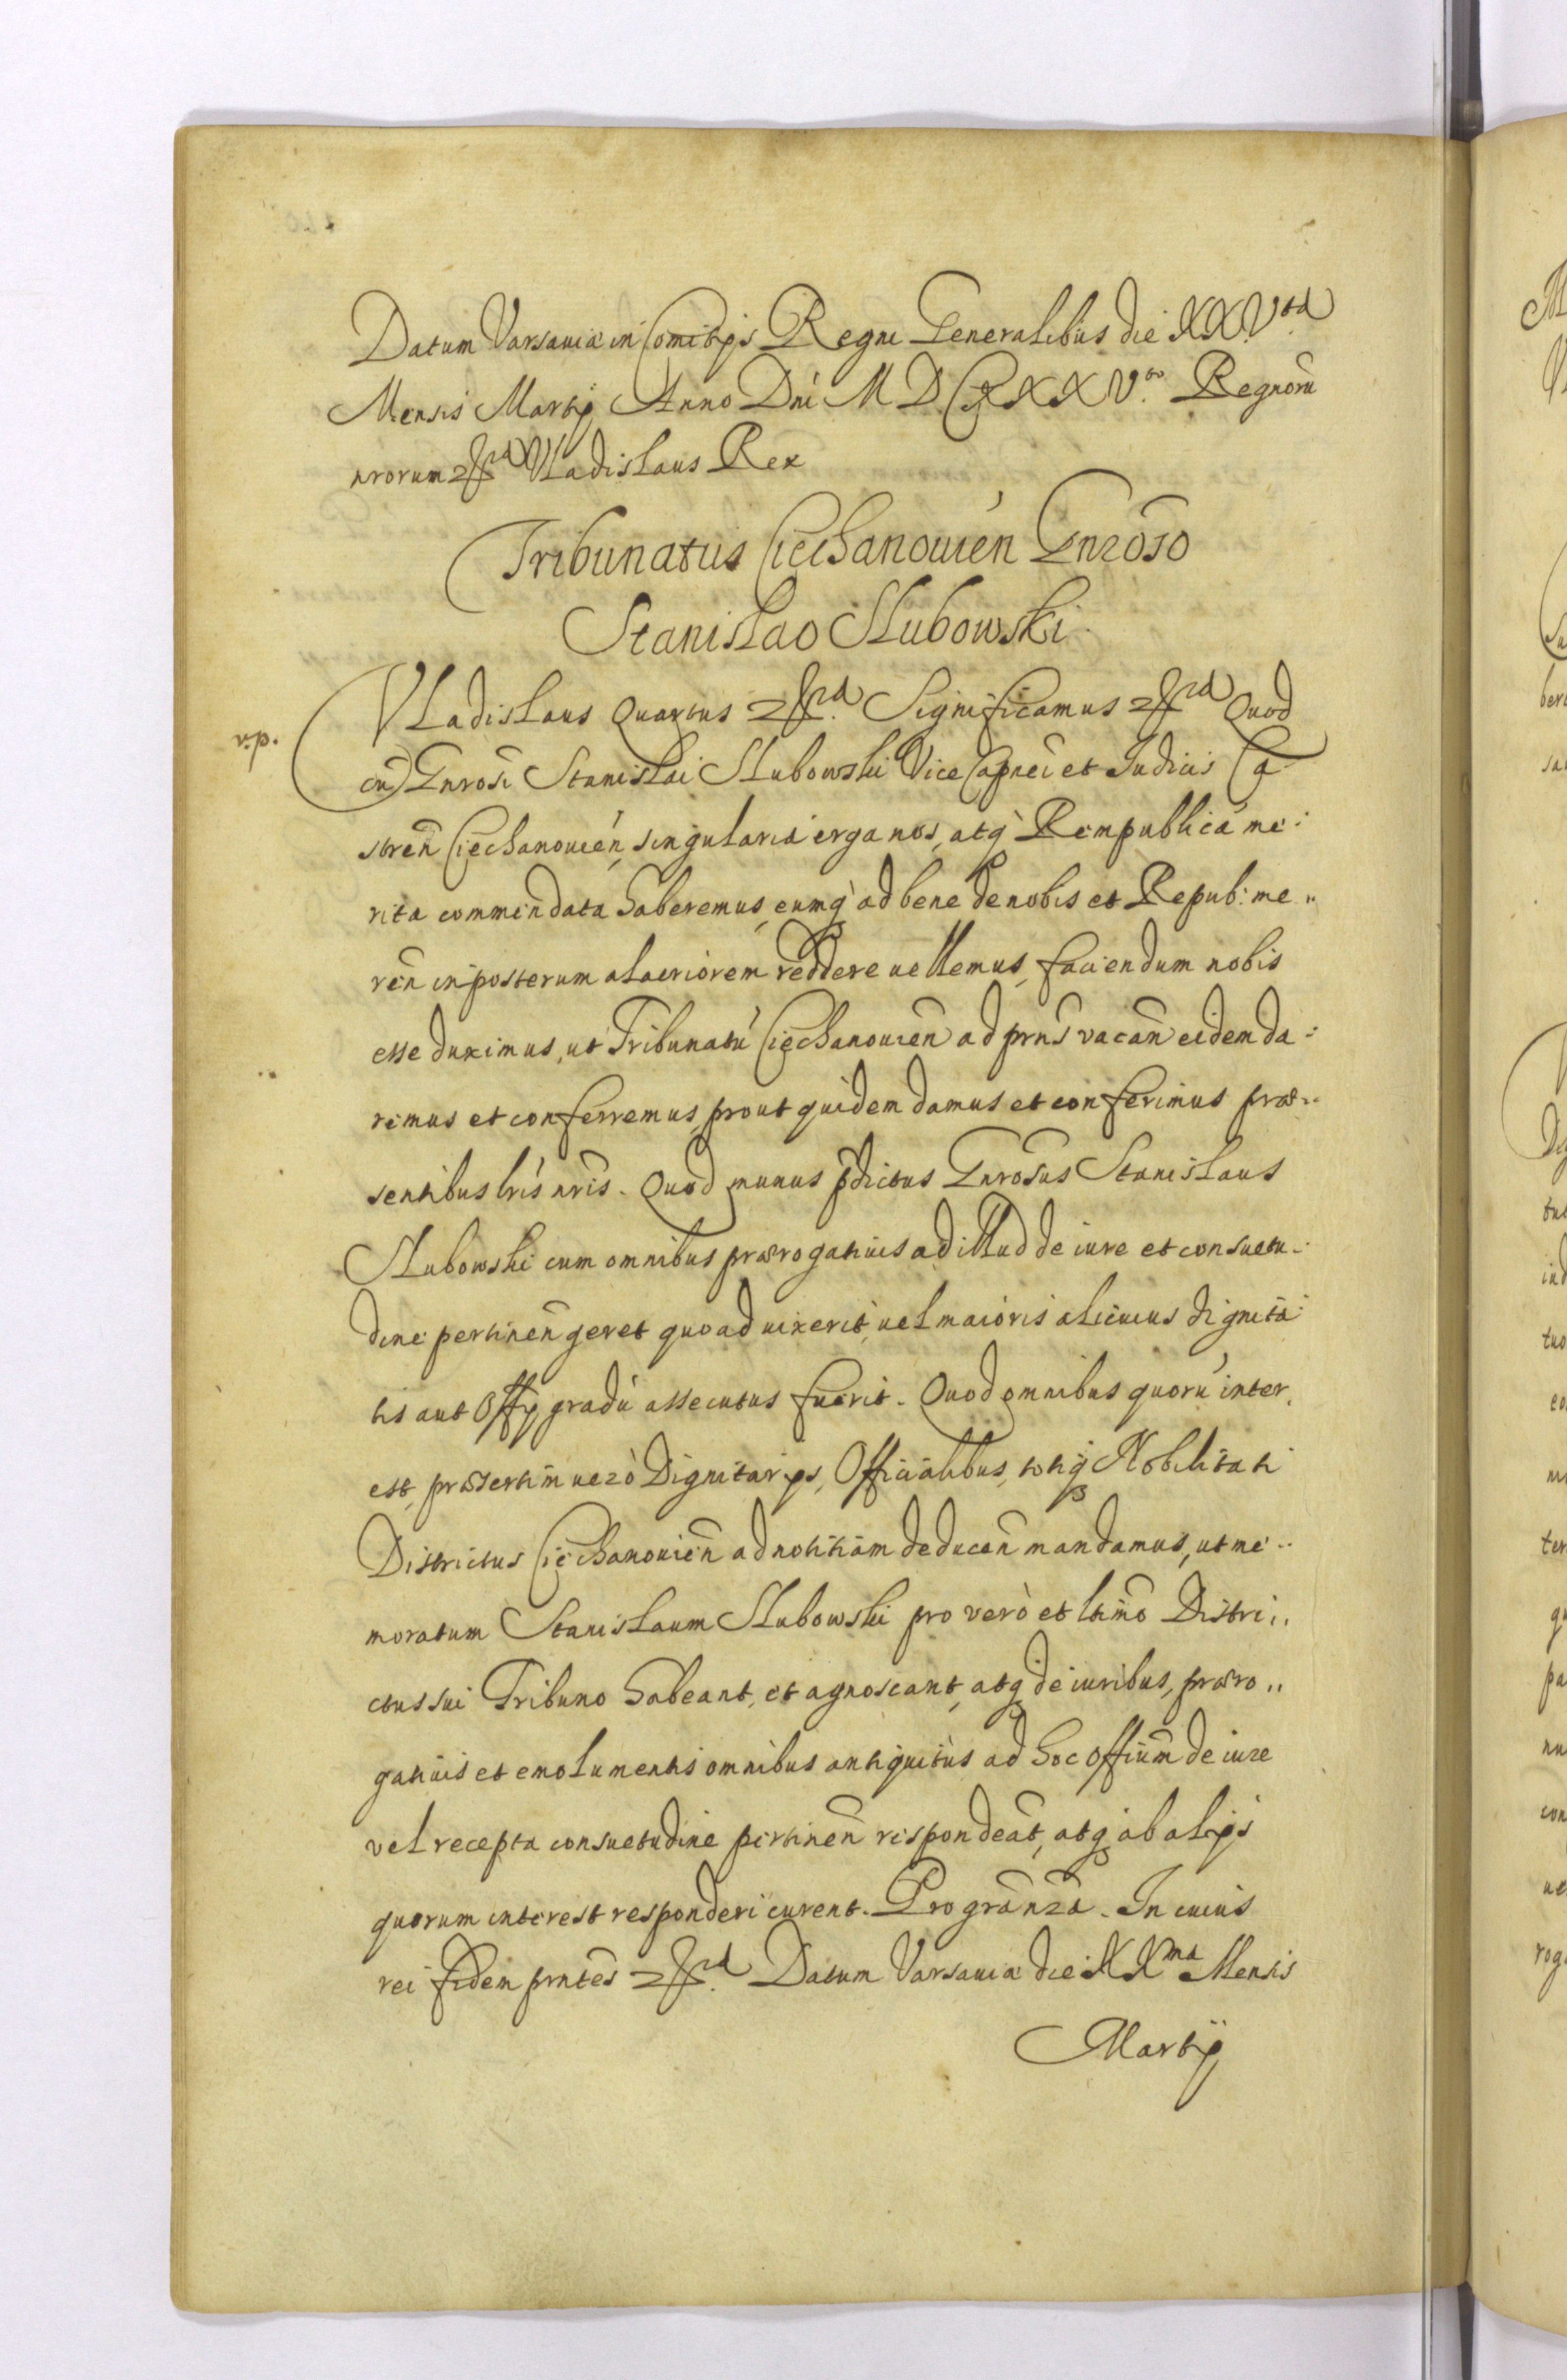 Datum Varsauiæ in Comitijs Regni Generalibus die XXVta
Mensis Martij Anno Dni M D C XXXVto Regnorũ
nrorum &ra Vladislaus Rex
Tribunatus Ciechanouien̄ Gnroso
Stanislao Slubowski
Vladislaus Quartus &ra. Significamus &ra Quod
cũ Gnrosi Stanislai Slubowski Vice Capnei et Iudicis Ca
stren̄ Ciechanouien̄, singularia erga nos, atq̀ Rempublicā me:
rita commendata haberemus, eumq̀ ad bene de nobis et Repub: me„
ren̄ inposterum alacriorem reddere uellemus, faciendum nobis
esse duximus, ut Tribunatū Ciechanouien̄ ad prns vacan̄ eidem da:
remus et conferremus, prout quidem damus et conferimus præ„
sentibus lris nris. Quod munus pdictus Gnrosus Stanislaus
Slubowski cum omnibus prærogatiuis ad illud de iure et consuetu:
dine pertinen̄ geret quoad uixerit, uel maioris alicuius dignita:
tis aut Offy gradū assecutus fuerit. Quod omnibus quorū inter,
est, præsertim uerò Dignitarijs, Officialibus, totiq̀ Nobilitati
Districtus Ciechanouien̄ ad notitiam deducen̄ mandamus, ut me„
moratum Stanislaum Slubowski pro verò et ltimo Distri„
ctus sui Tribuno habeant, et agnoscant, atq̀ de iuribus, præro„
gatiuis et emolumentis omnibus antiquitùs ad hoc offium de iure
vel recepta consuetudine pertinen̄ respondeāt, atq̀ ab alijs
quorum interest responderi curent. Pro gra nra. In cuius
rei fidem prntes &ra. Datum Varsauiæ die XXma Mensis
Martij